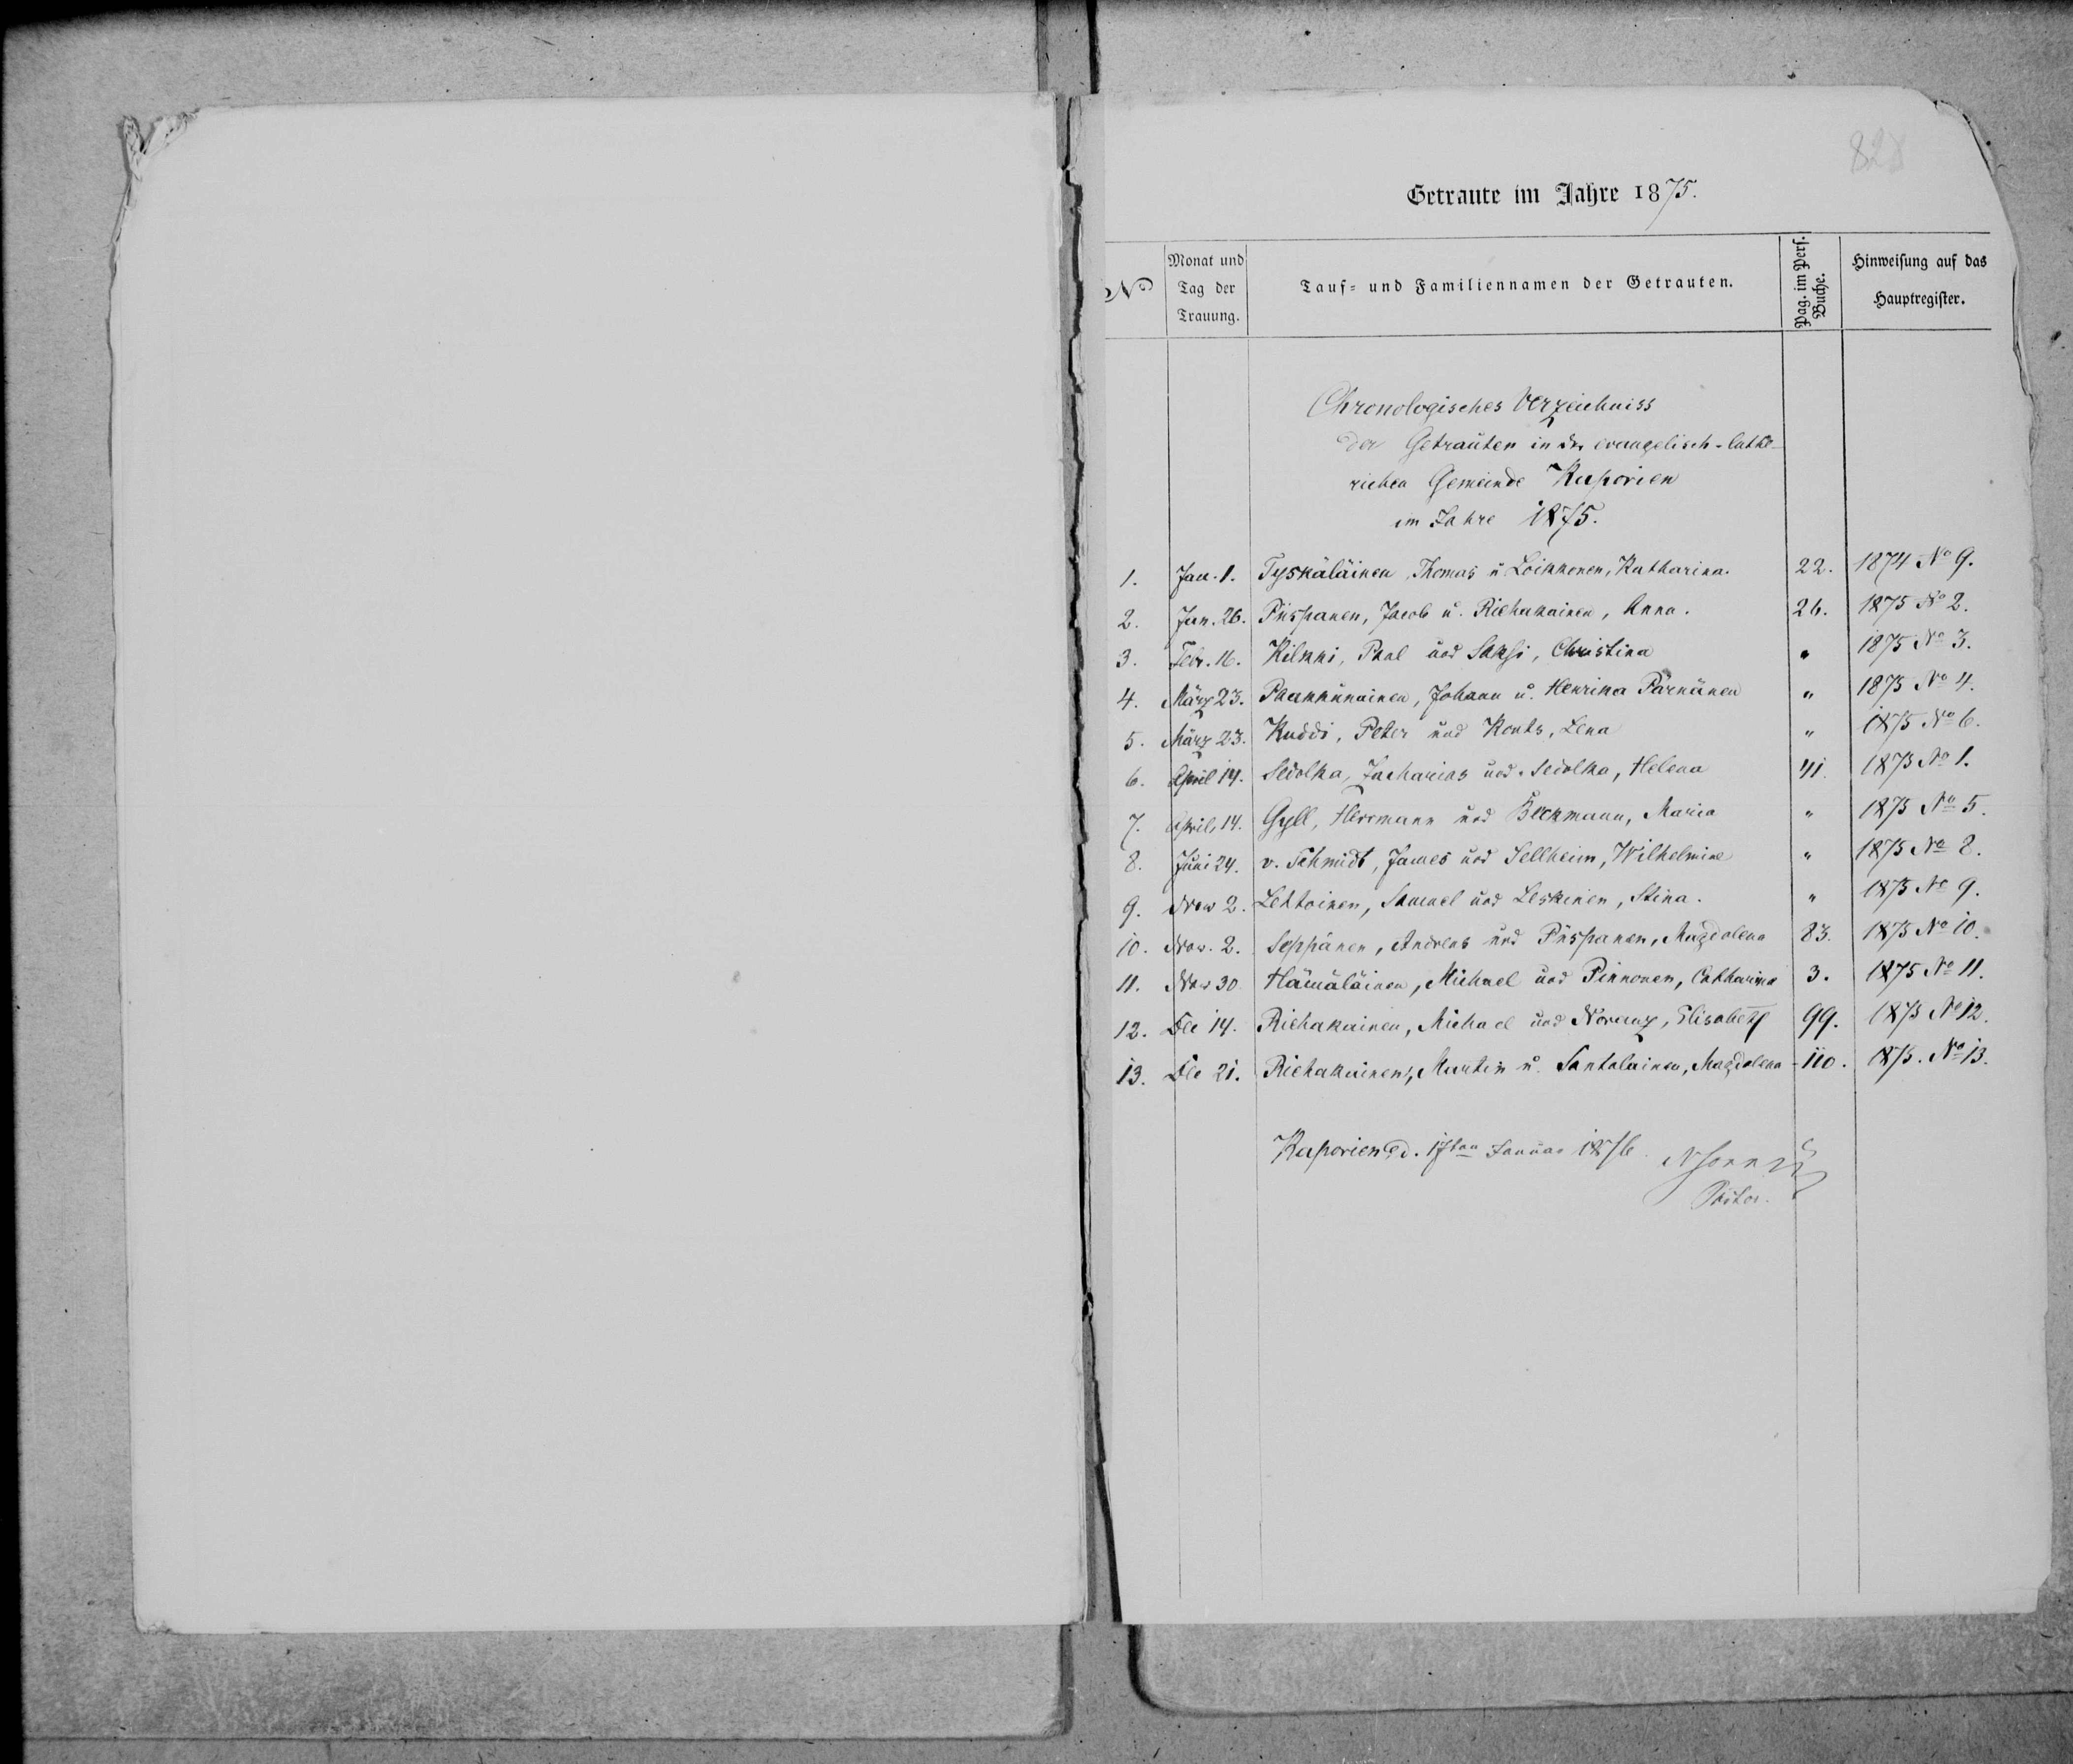 Getraute im Jahre 1875.
№ Monat und Tag der Trauung. Tauf- und Familiennamen der Getrauten. Pag. im Pers. Buche. Hinweisung auf das Hauptregister.
Chronologisches Verzeichniss
der Getrauten in der evangelisch-luthe-
rischen Gemeinde Kuporien
im Jahre 1875.
1. Jan. 1. Tyskäläinen, Thomas u Loikkonen, Katharina. 22. 1874 No 9.
2. Jan. 26. Piispanen, Jacob u. Riehakainen, Anna. 26. 1875 No 2.
3. Febr. 16. Kilkki, Paul und Saksi, Christina " 1875 No 3.
4. März 23. Paukkunainen, Johann u. Henrika Pärnänen " 1875 No 4.
5. März 23. Kuddi, Peter und Konts, Lena " 1875 No 6.
6. April 14. Sedolka, Zacharias und Sedolka, Helena 41. 1875 No 1.
7. April, 14. Gyll, Herrmann und Beckmann, Maria " 1875 No 5.
8. Juni 24. v. Schmidt, James und Sellheim, Wilhelmine " 1875 No 8.
9. Nov 2. Lettoinen, Samuel und Leskinen, Stina. " 1875 No 9.
10. Nov. 2. Seppänen, Andreas und Piispanen, Magdalena 83. 1875 No 10.
11. Nov 30 Hämäläinen, Michael und Pinnonen, Catharina 3. 1875 No 11.
12. Dec 14. Riehakainen, Michael und Noranz, Elisabeth 99. 1875 No 12.
13. Dec 21. Riehakainen, Martin u. Santalainen, Magdalena 110. 1875. No 13.
Kaporien d. 17ten Januar 1876.
Pastor.